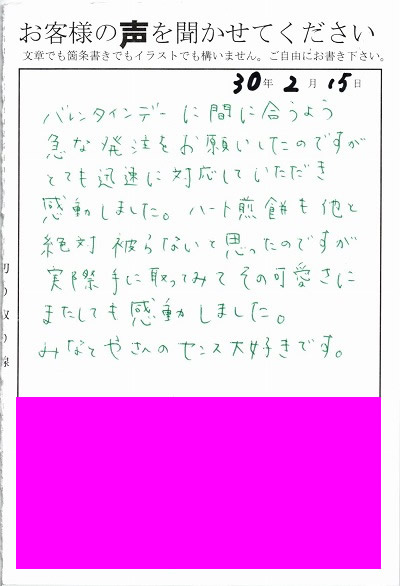 お客様の声を聞かせてください
文章でも箇条書きでもイラストでも構いません。ご自由にお書き下さい。
30年2月15日
バレンタインデーに間に合うよう
急な発注をお願いしたのですが
とても迅速に対応していただき
感動しました。ハート煎餅も他と
絶対被らないと思ったのですが
実際手に取ってみてその可愛さに
またしても感動しました。
みなとやさんのセンス大好きです。